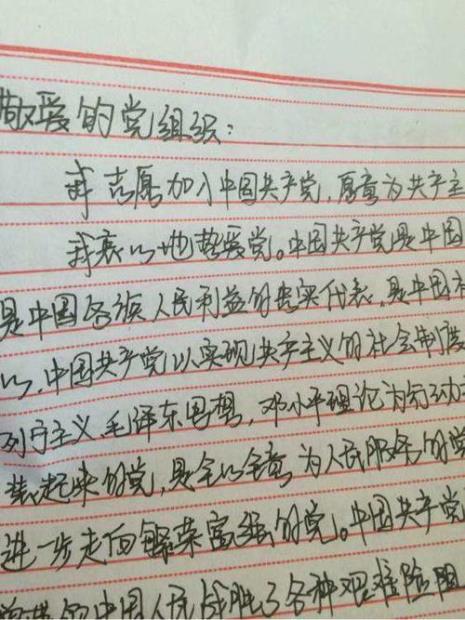 敬爱的党组织：
我志愿加入中国共产党，愿意为共产主
我衷心地热爱党。中国共产党是中国
是中国各族人民利益的忠实代表，是中国社
心，中国共产党以实现共产主义的社会制度
列宁主义、毛泽东思想，邓小平理论为行动
装起来的党，是全心全意为人民服务的党
进一步走向繁荣富强的党。中国共产党
的中国人民战胜了各种艰难险阻